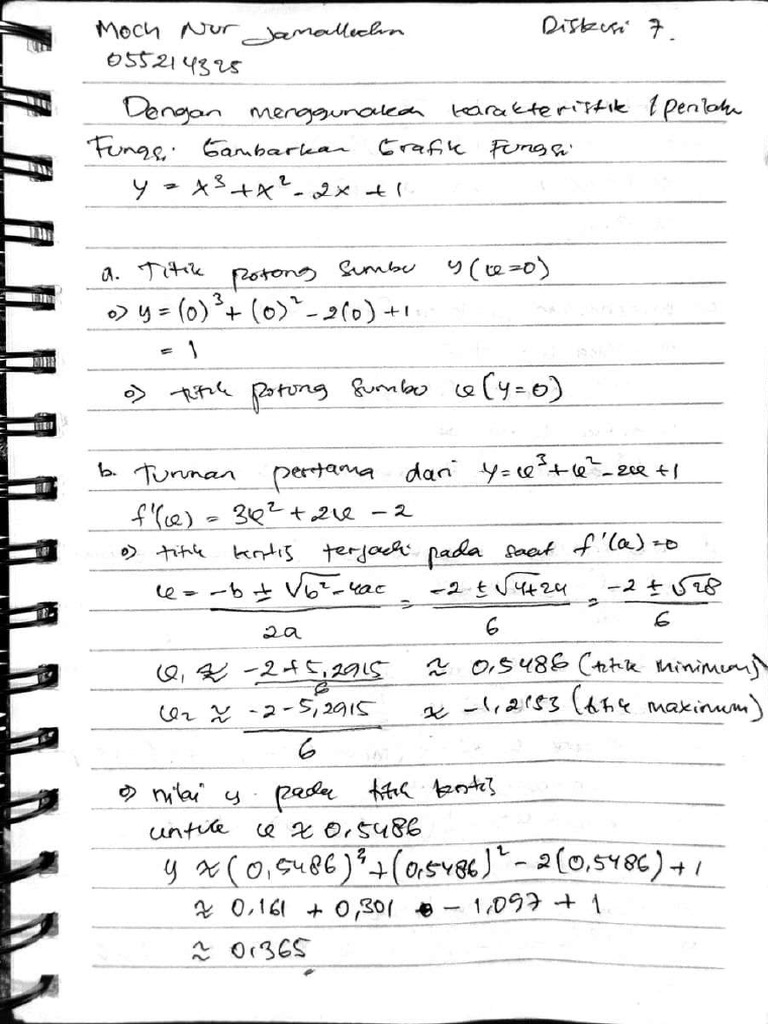 Moch Nur Jamalludin Diskusi 7.
055214325
Dengan menggunakan karakteristik / perilaku
Fungsi. Gambarkan Grafik Fungsi.
y = x³ + x² - 2x + 1
a. Titik potong Sumbu y (x=0)
o> y = (0)³ + (0)² - 2(0) + 1
= 1
o> titik potong Sumbu x (y=0)
b. Turunan pertama dari y = x³ + x² - 2x + 1
f'(x) = 3x² + 2x - 2
o> titik kritis terjadi pada saat f'(x) = 0
x = -b ± √b² - 4ac / 2a = -2 ± √4+24 / 6 = -2 ± √28 / 6
x₁ ≈ -2 + 5,2915 / 6 ≈ 0,5486 (titik minimum)
x₂ ≈ -2 - 5,2915 / 6 ≈ -1,2153 (titik maximum)
o> nilai y pada titik kritis
untuk x ≈ 0,5486
y ≈ (0,5486)³ + (0,5486)² - 2(0,5486) + 1
≈ 0,161 + 0,301 - 1,097 + 1
≈ 0,365